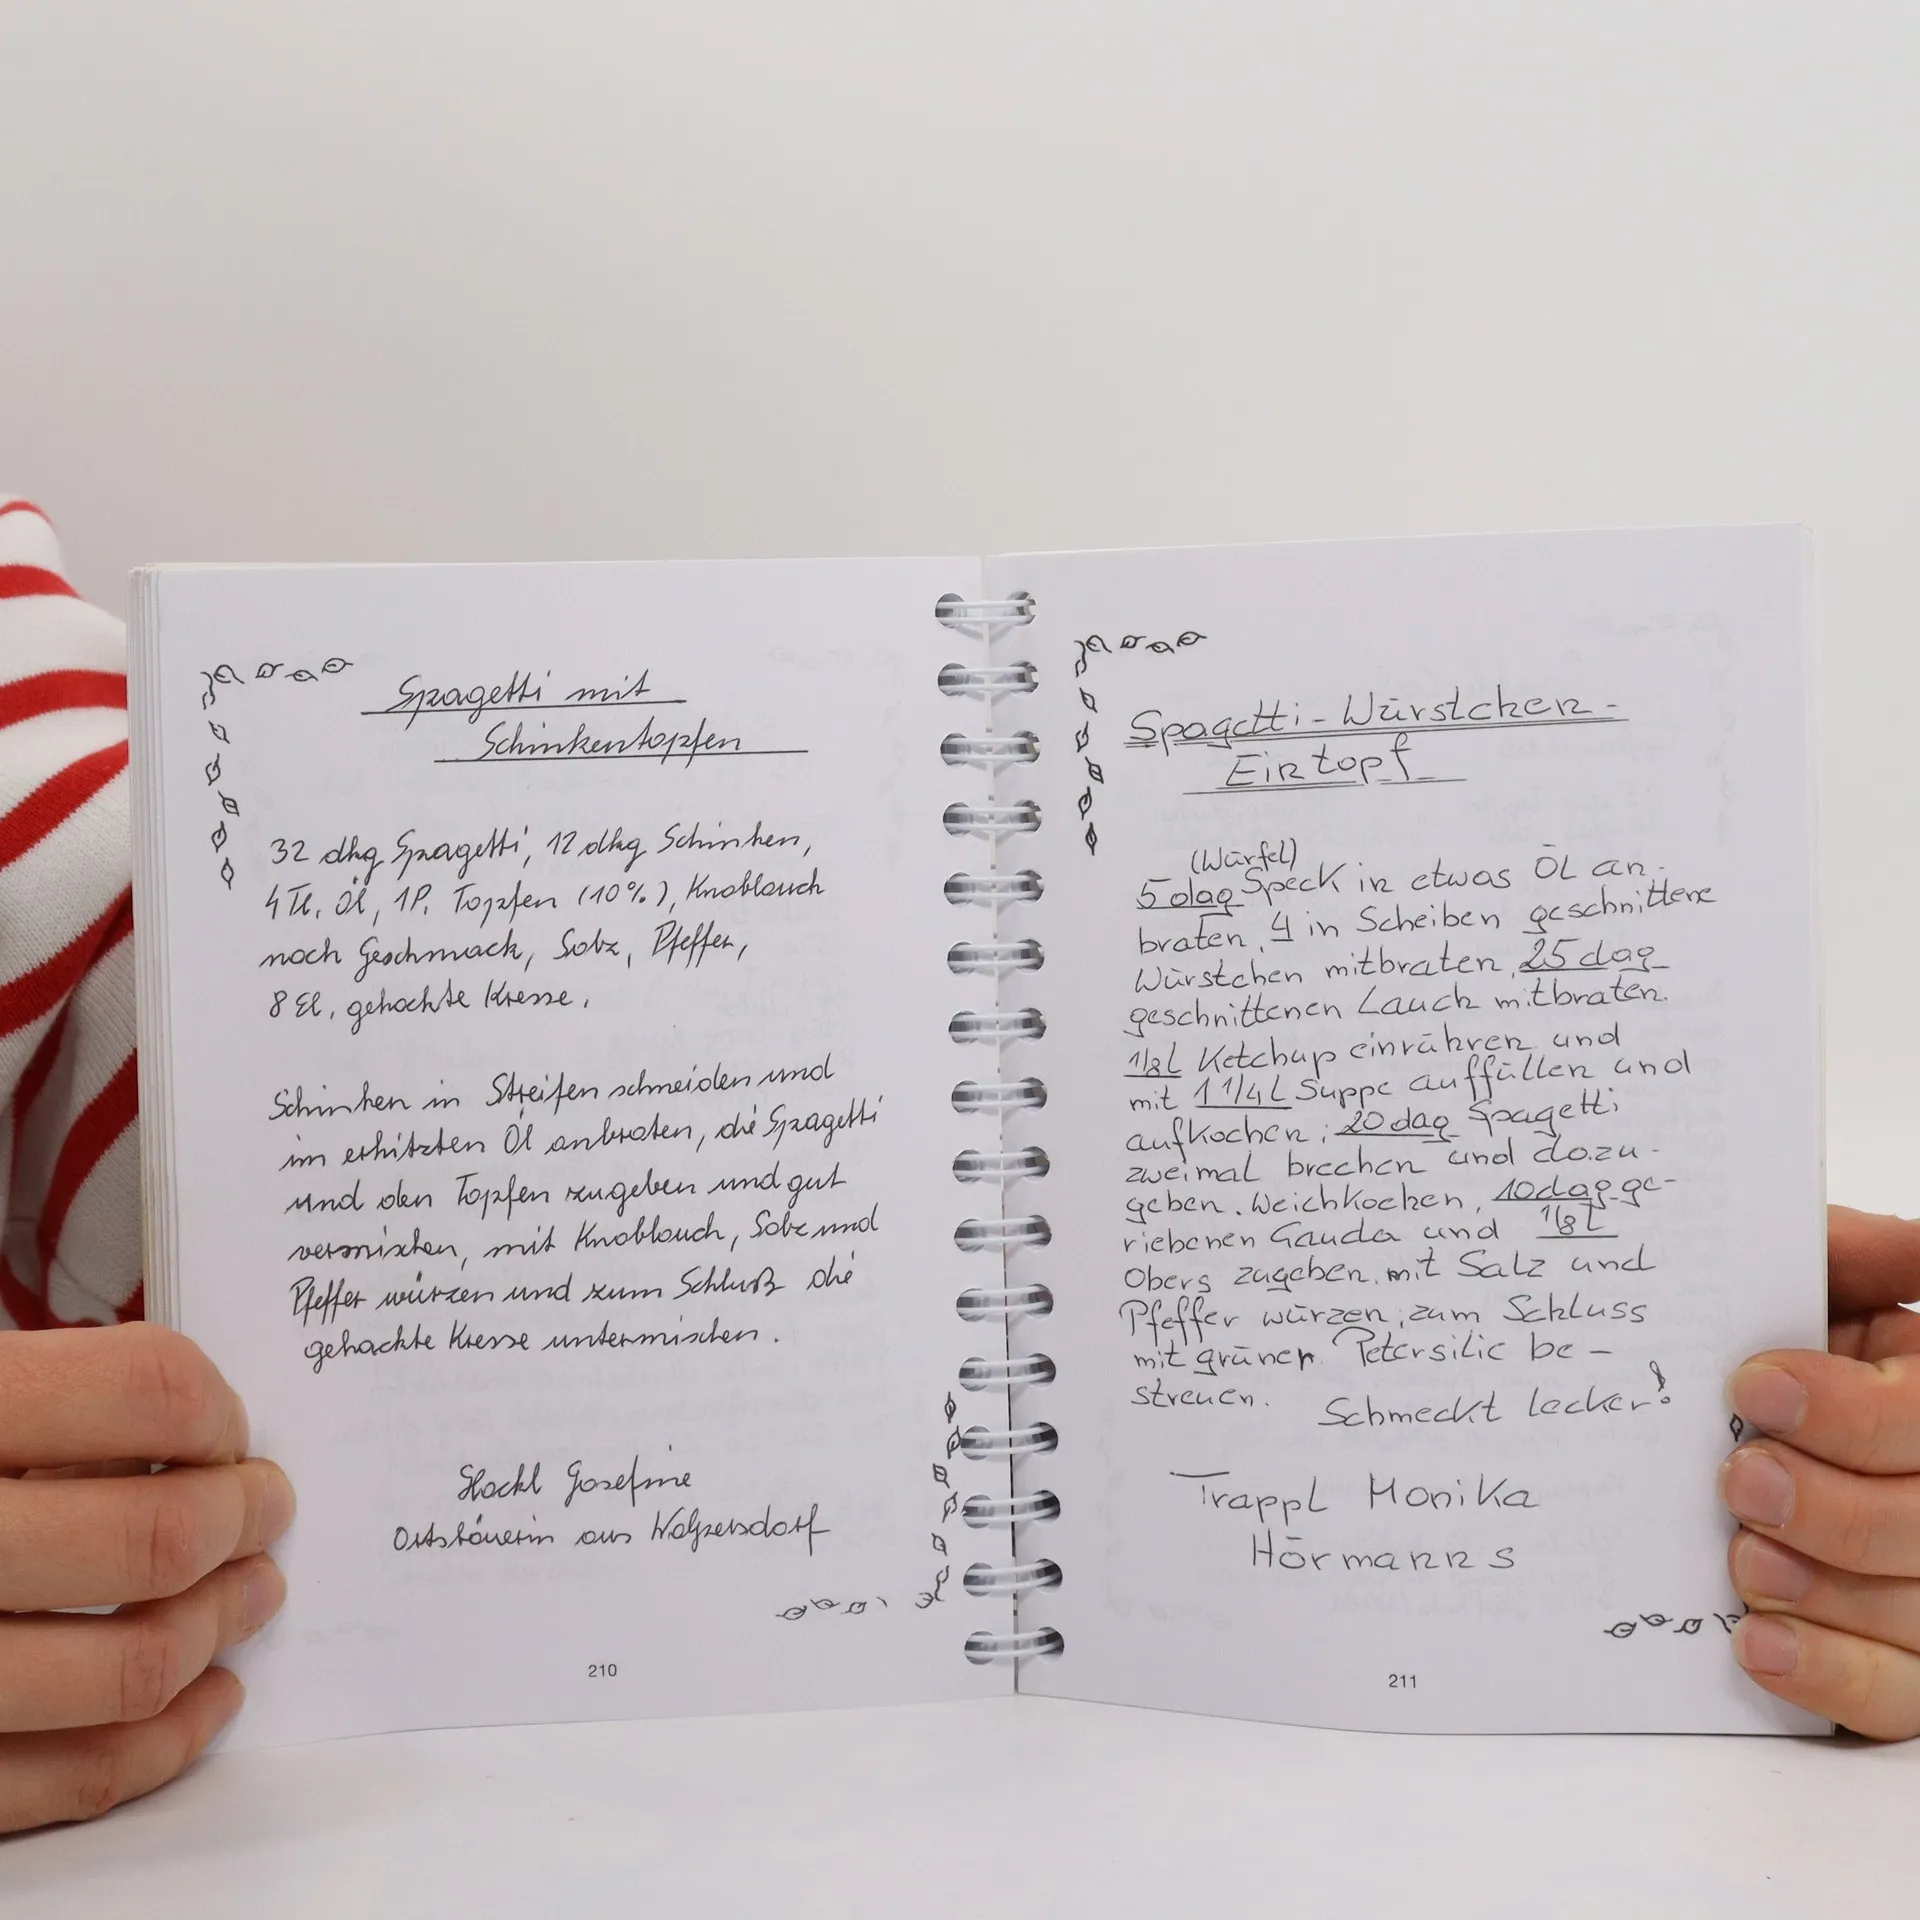 Spagetti mit
Schinkentopfen
32 dkg Spagetti, 12 dkg Schinken,
4 Tl. Öl, 1P. Topfen (10%), Knoblauch
nach Geschmack, Salz, Pfeffer,
8 El. gehackte Kresse.
Schinken in Streifen schneiden und
im erhitzten Öl anbraten, die Spagetti
und den Topfen zugeben und gut
vermischen, mit Knoblauch, Salz und
Pfeffer würzen und zum Schluß die
gehackte Kresse untermischen.
Hackl Josefine
Ortsbäuerin aus Wolpersdorf
210
Spagetti-Würstchen-
Eintopf
(Würfel)
5 dag Speck in etwas Öl an-
braten, 4 in Scheiben geschnittene
Würstchen mitbraten, 25 dag
geschnittenen Lauch mitbraten.
1/8 L Ketchup einrühren und
mit 1 1/4 L Suppe auffüllen und
aufkochen; 20 dag Spagetti
zweimal brechen und dazu-
geben. Weichkochen, 10 dag ge-
riebenen Gauda und 1/8 L
Obers zugeben, mit Salz und
Pfeffer würzen; zum Schluss
mit grüner Petersilie be-
streuen. Schmeckt lecker!
Trappl Monika
Hörmanns
211